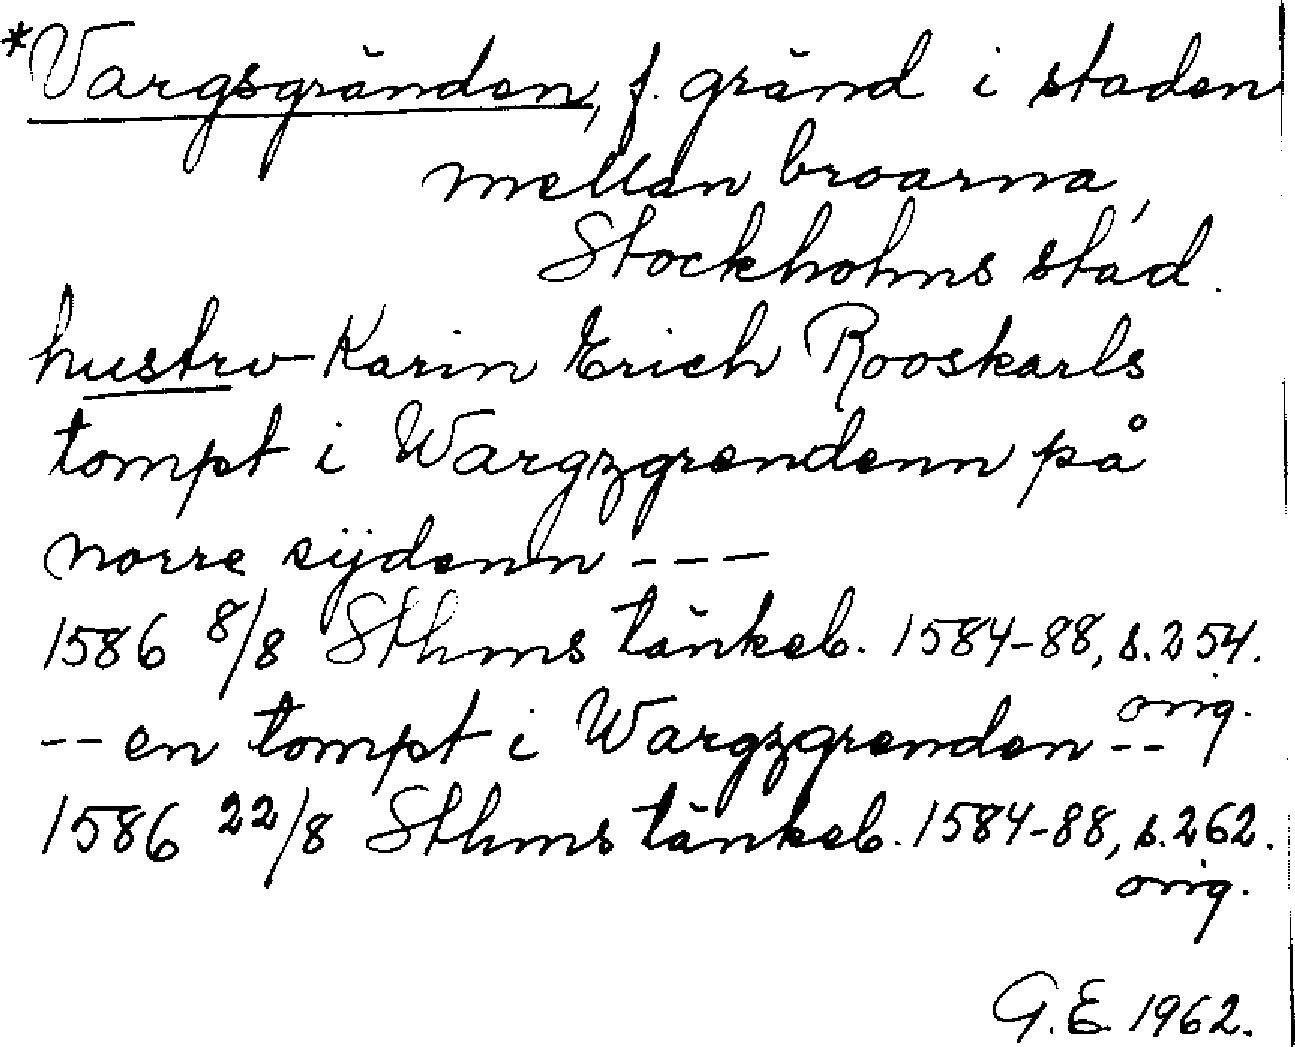 *Vargsgränden, f. gränd i staden
mellan broarna,
Stockholms stad.
hustrv Karin Erich Rooskarls
tompt i Wargzgrendenn på
norre sijdenn ---
1586 8/8 Sthms tänkeb. 1584-88, s. 254.
orig.
-- en tompt i Wargzgrenden --
1586 22/8 Sthms tänkeb. 1584-88, s. 262.
orig.
G.E. 1962.